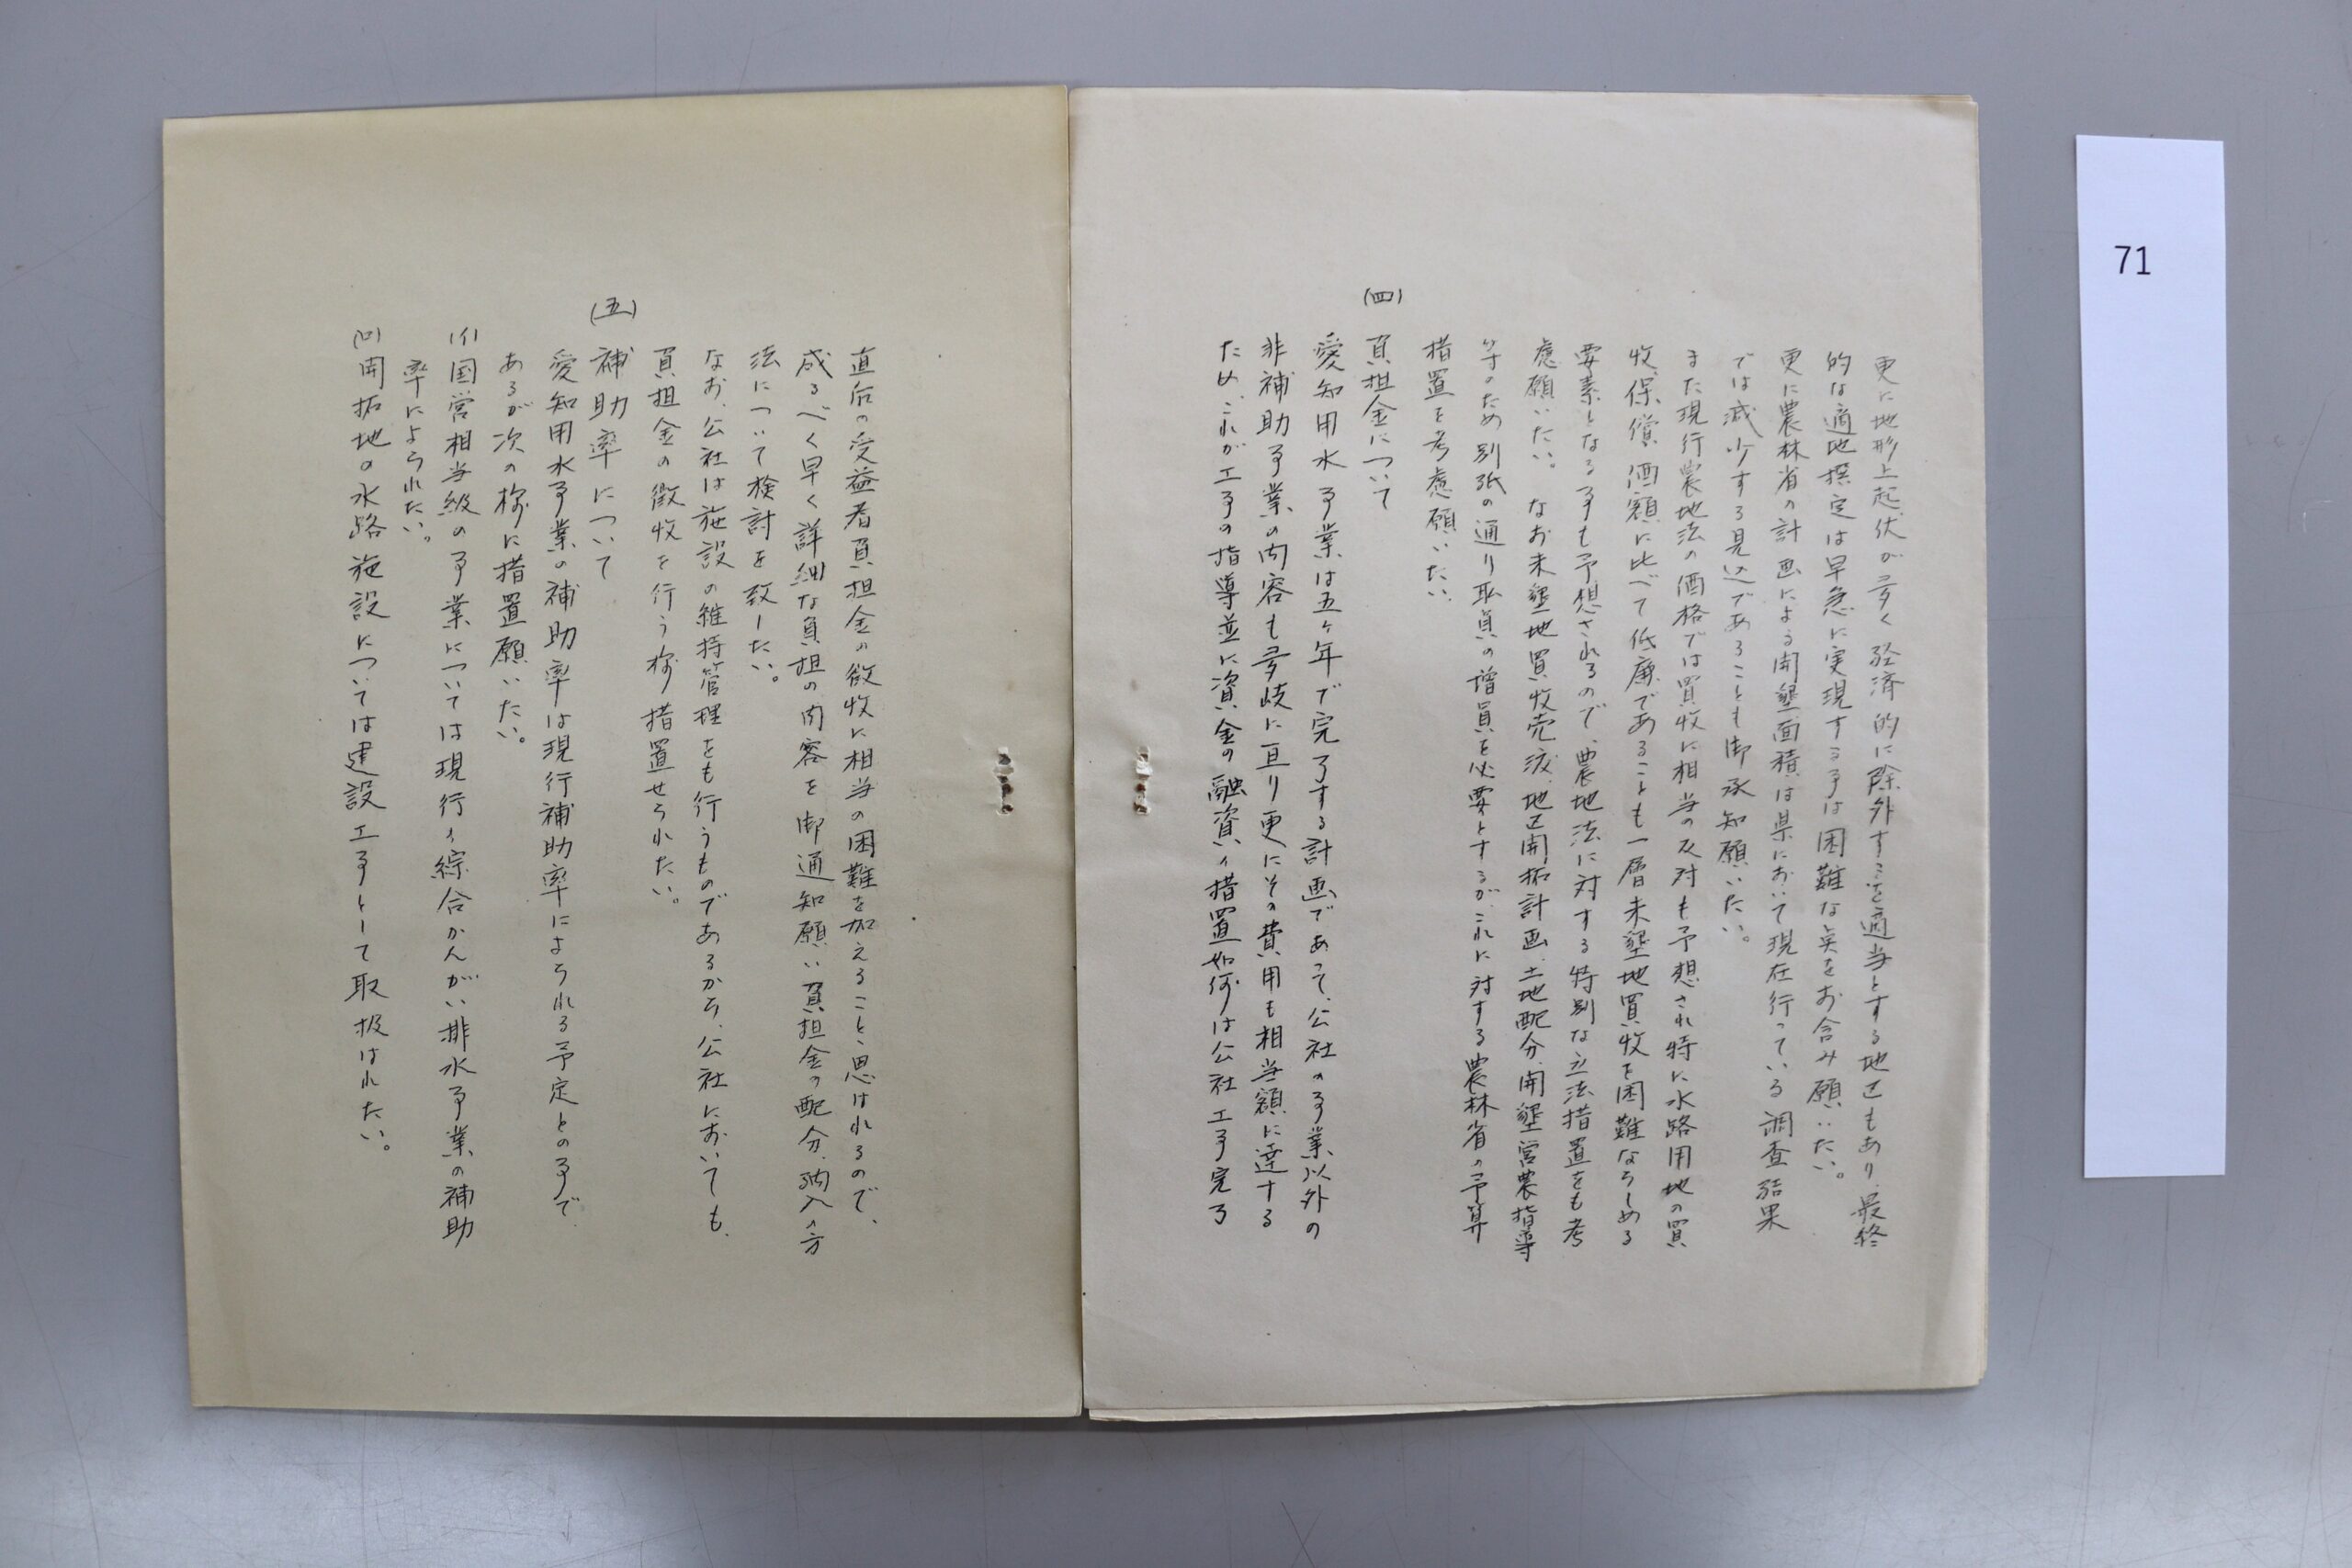 更に地形上起伏が多く経済的に除外するを適当とする地区もあり、最終
的な適地撰定は早急に実現する事は困難な点をお含み願いたい。
更に農林省の計画による開墾面積は県において現在行っている調査結果
では減少する見込であることも御承知願いたい。
また現行農地法の価格では買收に相当の反対も予想され特に水路用地の買
收、保償価額に比べて低廉であることも一層未墾地買收を困難ならしめる
要素となる事も予想されるので、農地法に対する特別な立法措置をも考
慮願いたい。なお未墾地買收売渡、地区開拓計画、土地配分、開墾営農指導
等のため別紙の通り職員の増員を必要とするが、これに対する農林省の予算
措置を考慮願いたい。
(四)
負担金について
愛知用水事業は五ヶ年で完了する計画であって、公社の事業以外の
非補助事業の内容も多岐に亘り更にその費用も相当額に達する
ため、これが工事の指導並に資金の融資の措置如何は公社工事完了
直后の受益者負担金の徴收に相当の困難を加えること、思はれるので、
成るべく早く詳細な負担の内容を御通知願い負担金の配分、納入の方
法について検討を致したい。
なお、公社は施設の維持管理をも行うものであるから、公社においても、
負担金の徴收を行う様措置せられたい。
(五)
補助率について
愛知用水事業の補助率は現行補助率によられる予定との事で
あるが次の様に措置願いたい。
(イ)国営相当級の事業については現行の綜合かんがい排水事業の補助
率によられたい。
(ロ)開拓地の水路施設については建設工事として取扱はれたい。
71